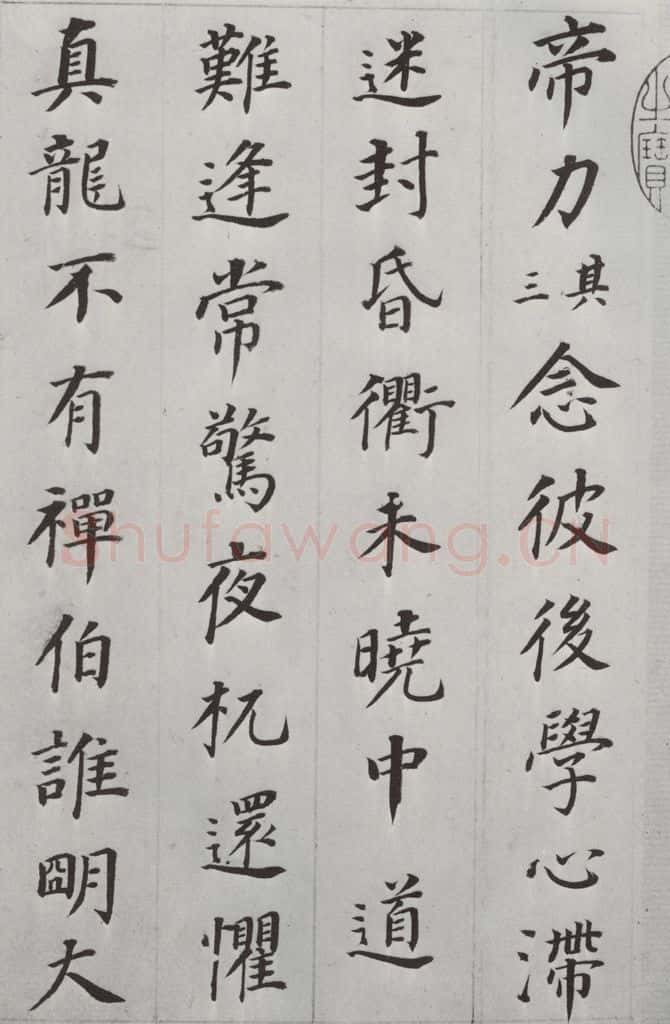 之寶
帝力其三念彼後學心滯
迷封昏衢未曉中道
難逢常驚夜杌還懼
真龍不有禪伯誰朙大
Shufawang.CN